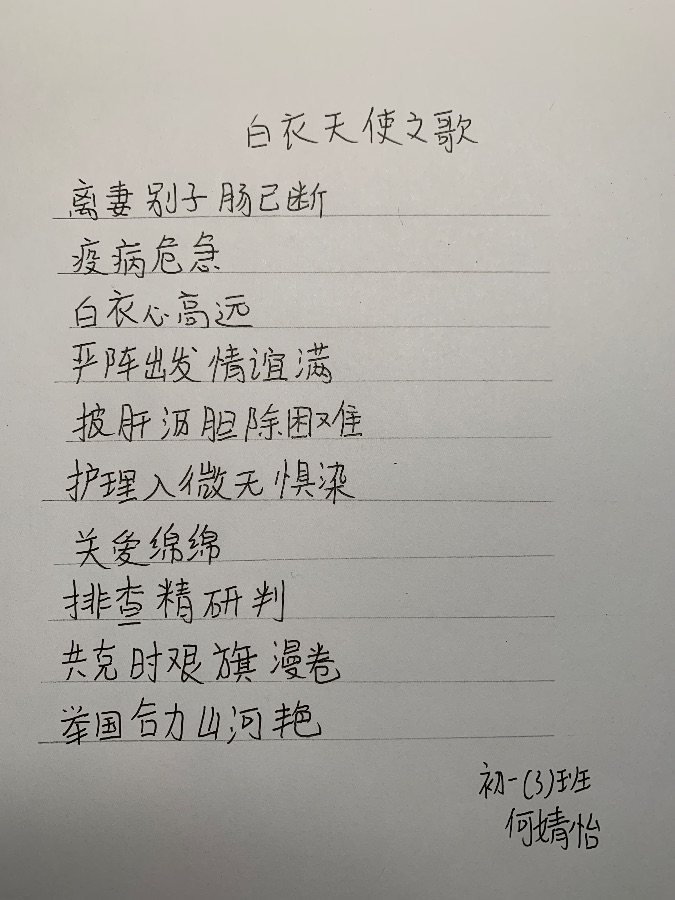 白衣天使之歌
离妻别子肠已断
疫病危急
白衣心高远
严阵出发情谊满
披肝沥胆除困难
护理入微无惧染
关爱绵绵
排查精研判
共克时艰旗漫卷
举国合力山河艳
初一(3)班
何婧怡